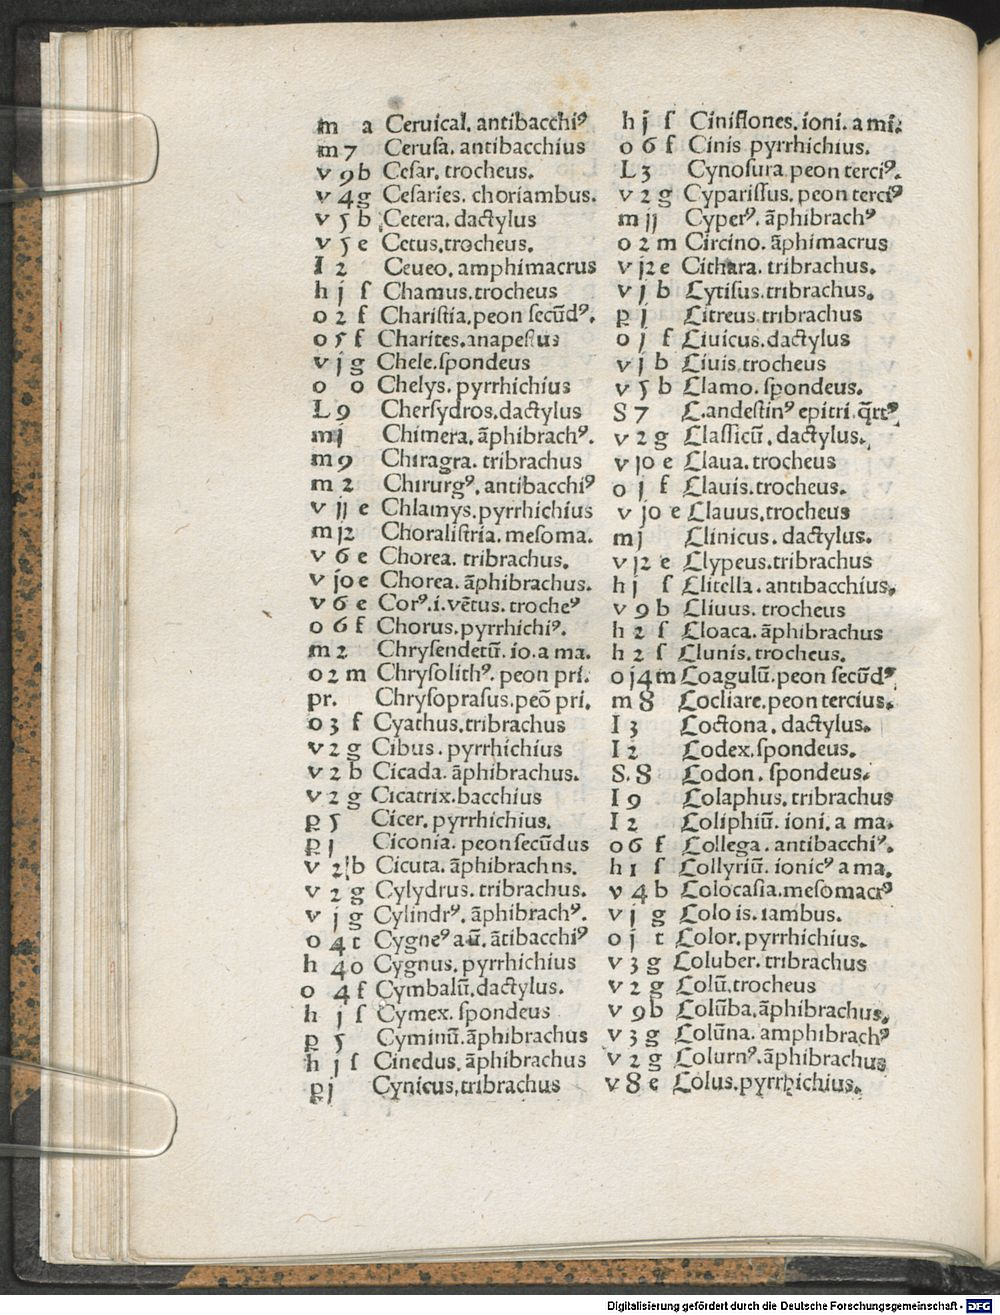 m a Ceruical. antibacchiꝰ
m 7 Cerusa. antibacchius
v 9 b Cesar. trocheus.
v 4 g Cesaries. choriambus.
v 5 b Cetera. dactylus
v 5 e Cetus. trocheus.
I 2 Ceueo. amphimacrus
h j s Chamus. trocheus
o 2 f Charistia. peon secūdꝰ.
o 5 f Charites. anapestus
v j g Chele. spondeus
o o Chelys. pyrrhichius
L 9 Chersydros. dactylus
m j Chimera. āphibrachꝰ.
m 9 Chiragra. tribrachus
m 2 Chirurgꝰ. antibacchiꝰ
v jj e Chlamys. pyrrhichius
m j2 Choralistria. mesoma.
v 6 e Chorea. tribrachus.
v j0 e Chorea. āphibrachus.
v 6 e Corꝰ. i. vētus. trocheꝰ
o 6 f Chorus. pyrrhichiꝰ.
m 2 Chrysendetū. io. a ma.
o 2 m Chrysolithꝰ. peon pri.
pr. Chrysoprasus. peō pri.
o 3 f Cyathus. tribrachus
v 2 g Cibus. pyrrhichius
v 2 b Cicada. āphibrachus.
v 2 g Cicatrix. bacchius
p 5 Cicer. pyrrhichius.
p j Ciconia. peon secūdus
v 2 b Cicuta. āphibrachns.
v 2 g Cylydrus. tribrachus.
v j g Cylindrꝰ. āphibrachꝰ.
o 4 t Cygneꝰ aū. ātibacchiꝰ
h 4 o Cygnus. pyrrhichius
o 4 f Cymbalū. dactylus.
h j s Cymex. spondeus
p 5 Cyminū. āphibrachus
h j s Cinedus. āphibrachus
p j Cynicus. tribrachus
h j s Ciniflones. ioni. a mi.
o 6 f Cinis pyrrhichius.
L 3 Cynosura peon terciꝰ.
v 2 g Cyparissus. peon terciꝰ
m jj Cyperꝰ. āphibrachꝰ
o 2 m Circino. āphimacrus
v j2 e Cithara. tribrachus.
v j b Cytisus. tribrachus.
p j Citreus. tribrachus
o j f Ciuicus. dactylus
v j b Ciuis trocheus
v 5 b Clamo. spondeus.
S 7 Clandestinꝰ epitri. q̄rtꝰ
v 2 g Classicū. dactylus.
v j0 e Claua. trocheus
o j f Clauis. trocheus.
v j0 e Clauus. trocheus
m j Clinicus. dactylus.
v j2 e Clypeus. tribrachus
h j s Clitella. antibacchius.
v 9 b Cliuus. trocheus
h 2 s Cloaca. āphibrachus
h 2 s Clunis. trocheus.
o j4 m Coagulū. peon secūdꝰ
m 8 Cocliare. peon tercius.
I 3 Coctona. dactylus.
I 2 Codex. spondeus.
S. 8 Codon. spondeus.
I 9 Colaphus. tribrachus
I 2 Coliphiū. ioni. a ma.
o 6 f Collega. antibacchiꝰ.
h 1 s Collyriū. ionicꝰ a ma.
v 4 b Colocasia. mesomacrꝰ
v j g Colo is. iambus.
o j t Color. pyrrhichius.
v 3 g Coluber. tribrachus
v 2 g Colū. trocheus
v 9 b Colūba. āphibrachus.
v 3 g Colūna. amphibrachꝰ
v 2 g Colurnꝰ. āphibrachus
v 8 e Colus. pyrrhichius.
Digitalisierung gefördert durch die Deutsche Forschungsgemeinschaft - DFG